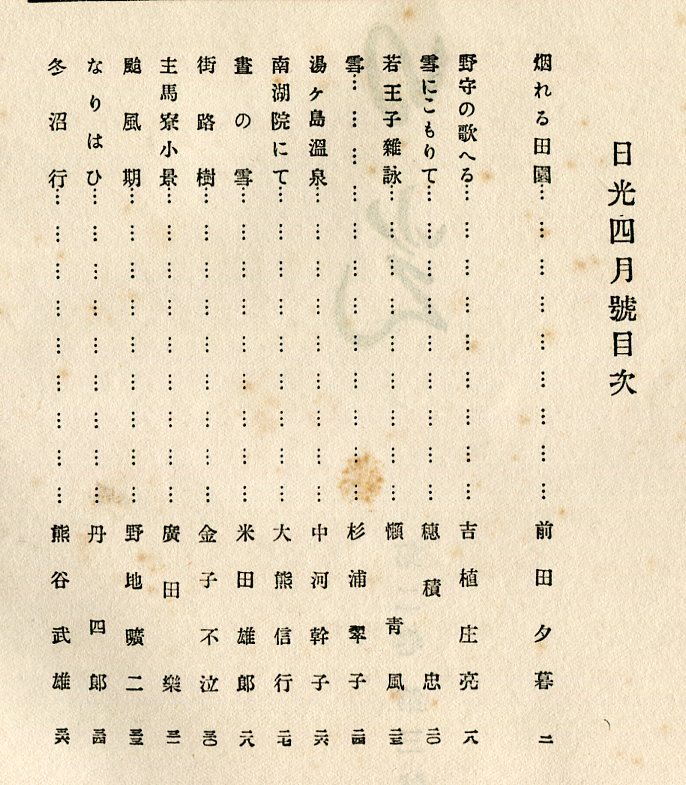 日光四月號目次
烟れる田園……………………………前田夕暮 二
野守の歌へる……………………………吉植庄亮 一八
雪にこもりて……………………………穂積忠 二〇
若王子雜詠……………………………懶青風 二三
雪……………………………杉浦翠子 二四
湯ヶ島溫泉……………………………中河幹子 二六
南湖院にて……………………………大熊信行 二七
晝の雪……………………………米田雄郎 二八
街路樹……………………………金子不泣 三〇
主馬寮小景……………………………廣田樂 三一
颱風期……………………………野地曠二 三三
なりはひ……………………………丹四郎 三四
冬沼行……………………………熊谷武雄 三六